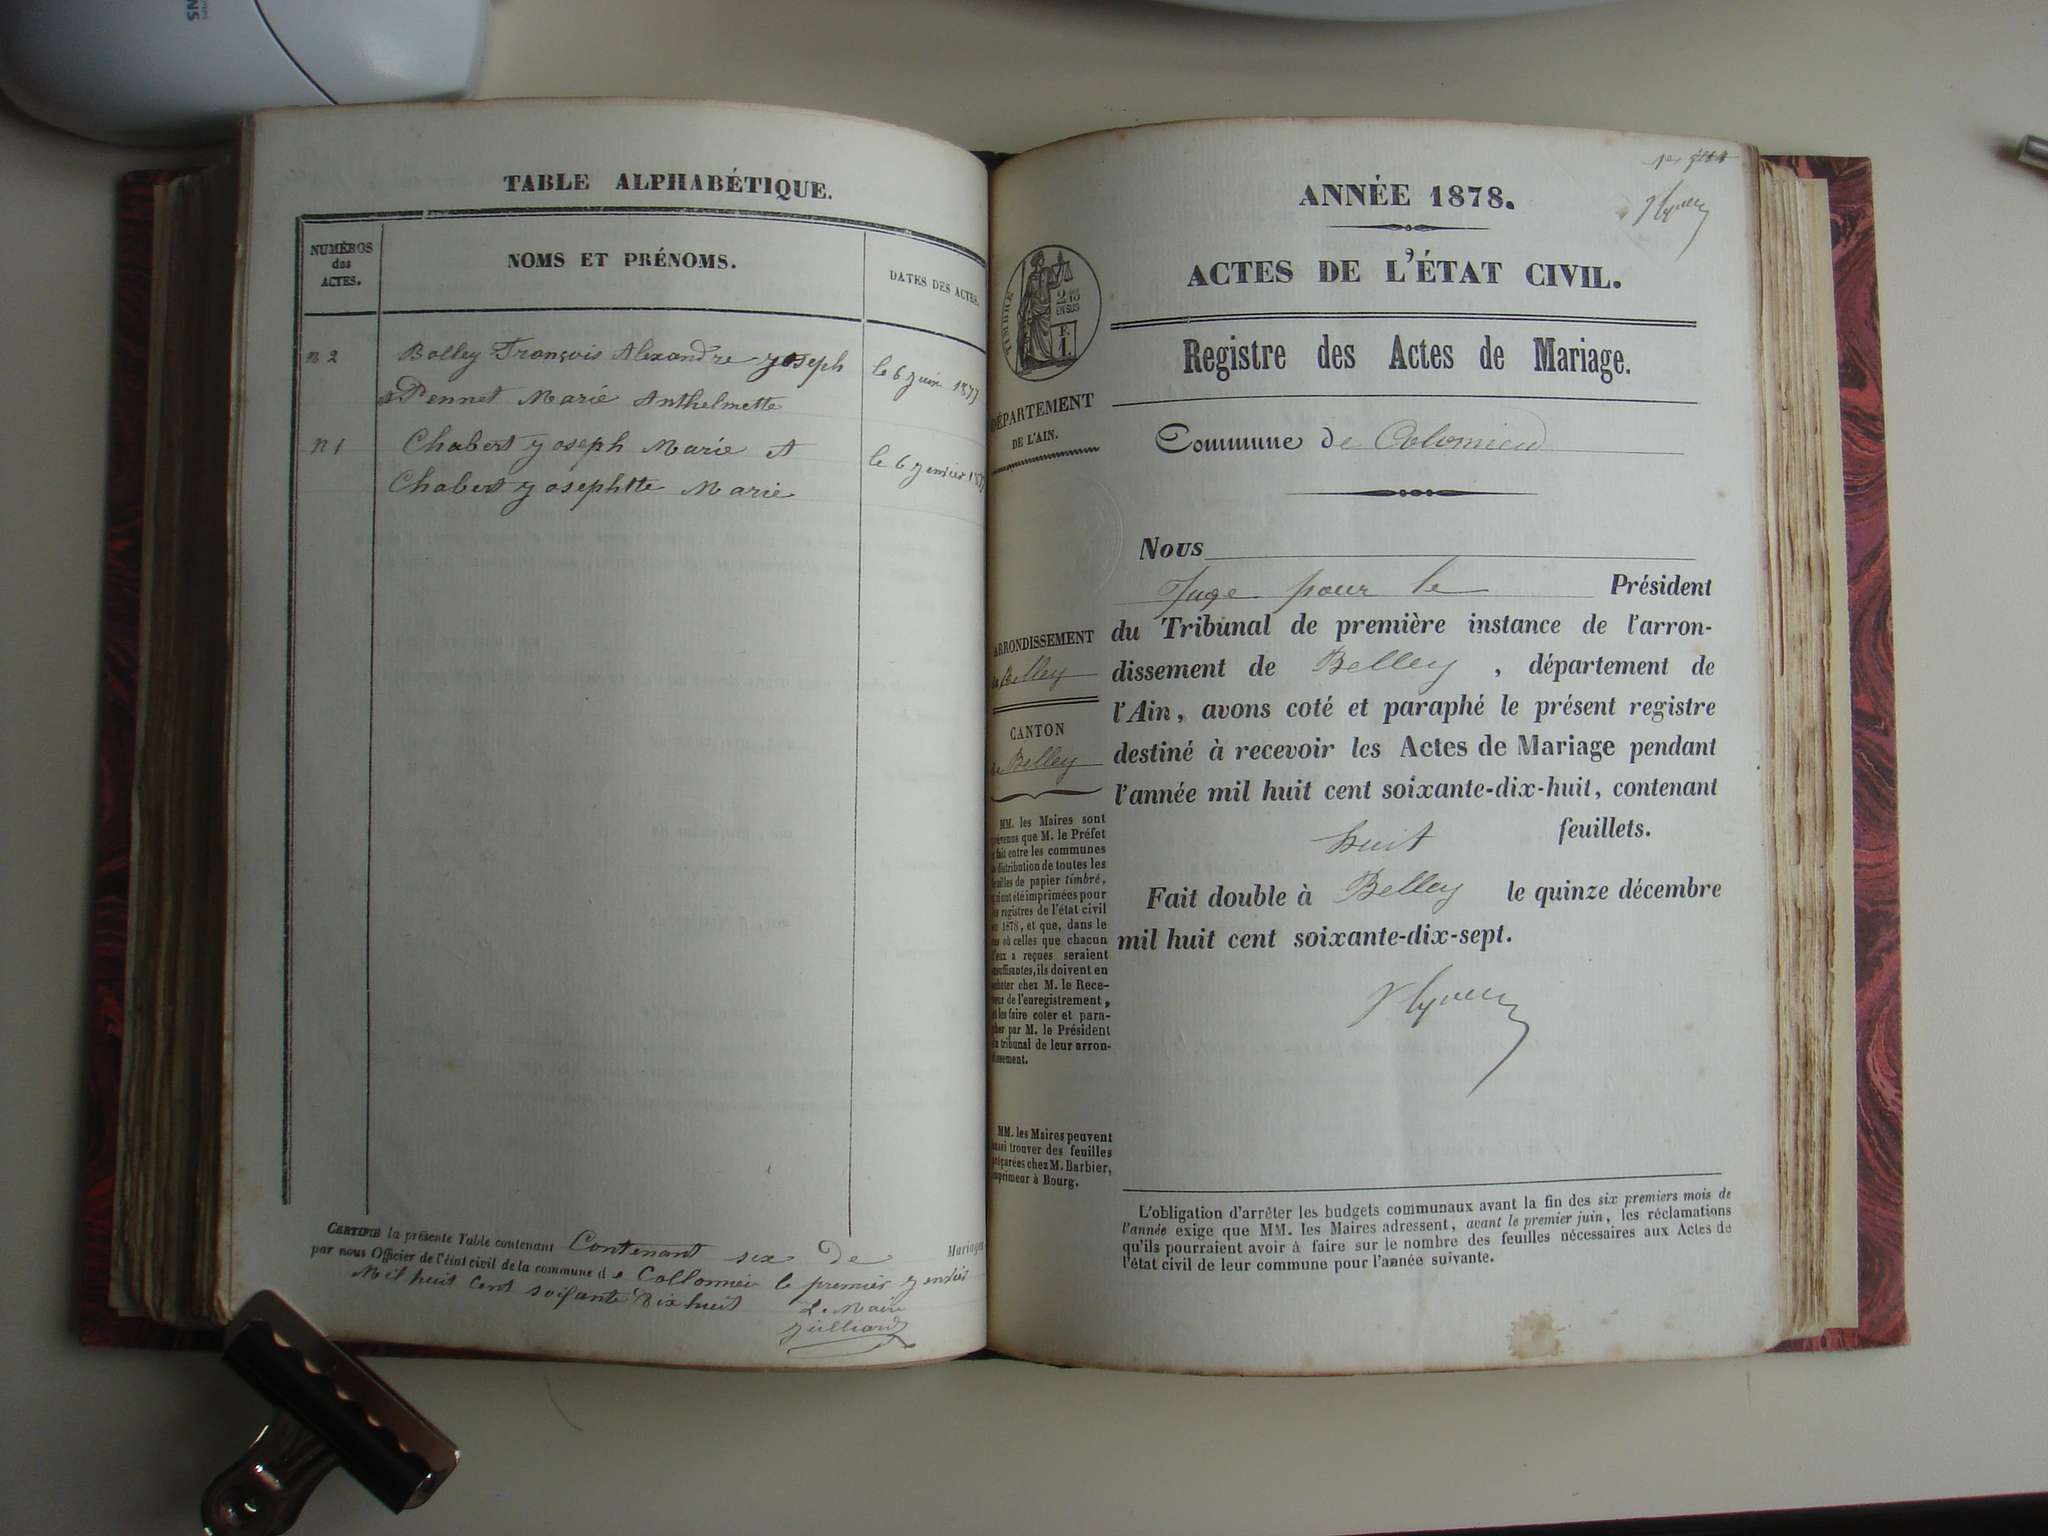 TABLE ALPHABÉTIQUE.
NUMÉROS
des
ACTES.
NOMS ET PRÉNOMS.
DATES DES ACTES.
n 2
Bolley François Alexandre Joseph
le 6 juin 1877
& Pennet Marie Anthelmette
n 1
Chabert Joseph Marie et
le 6 Jenvier 187
Chabert Josephtte Marie
CERTIFIÉ la présente Table contenant Contenant six de Mariages
par nous Officier de l'état civil de la commune de Collomieu le premier Jenvier
Mil huit Cent soixante Dix huit
Le Maire
Juilliard
1er
ANNÉE 1878.
ACTES DE L'ÉTAT CIVIL.
TIMBRE
2
EN SUS
Registre des Actes de Mariage.
DÉPARTEMENT
DE L'AIN.
Commune de Colomieu
Nous
Juge pour le Président
du Tribunal de première instance de l'arron-
dissement de Belley, département de
l'Ain, avons coté et paraphé le présent registre
destiné à recevoir les Actes de Mariage pendant
l'année mil huit cent soixante-dix-huit, contenant
huit feuillets.
Fait double à Belley le quinze décembre
mil huit cent soixante-dix-sept.
ARRONDISSEMENT
de Belley
CANTON
de Belley
MM. les Maires sont
prévenus que M. le Préfet
a fait entre les communes
la distribution de toutes les
feuilles de papier timbré,
qui ont été imprimées pour
les registres de l'état civil
en 1878, et que, dans le
cas où celles que chacun
d'eux a reçues seraient
insuffisantes, ils doivent en
acheter chez M. le Rece-
veur de l'enregistrement,
et les faire coter et para-
pher par M. le Président
du tribunal de leur arron-
dissement.
MM. les Maires peuvent
aussi trouver des feuilles
préparées chez M. Barbier,
imprimeur à Bourg.
L'obligation d'arrêter les budgets communaux avant la fin des six premiers mois de
l'année exige que MM. les Maires adressent, avant le premier juin, les réclamations
qu'ils pourraient avoir à faire sur le nombre des feuilles nécessaires aux Actes de
l'état civil de leur commune pour l'année suivante.